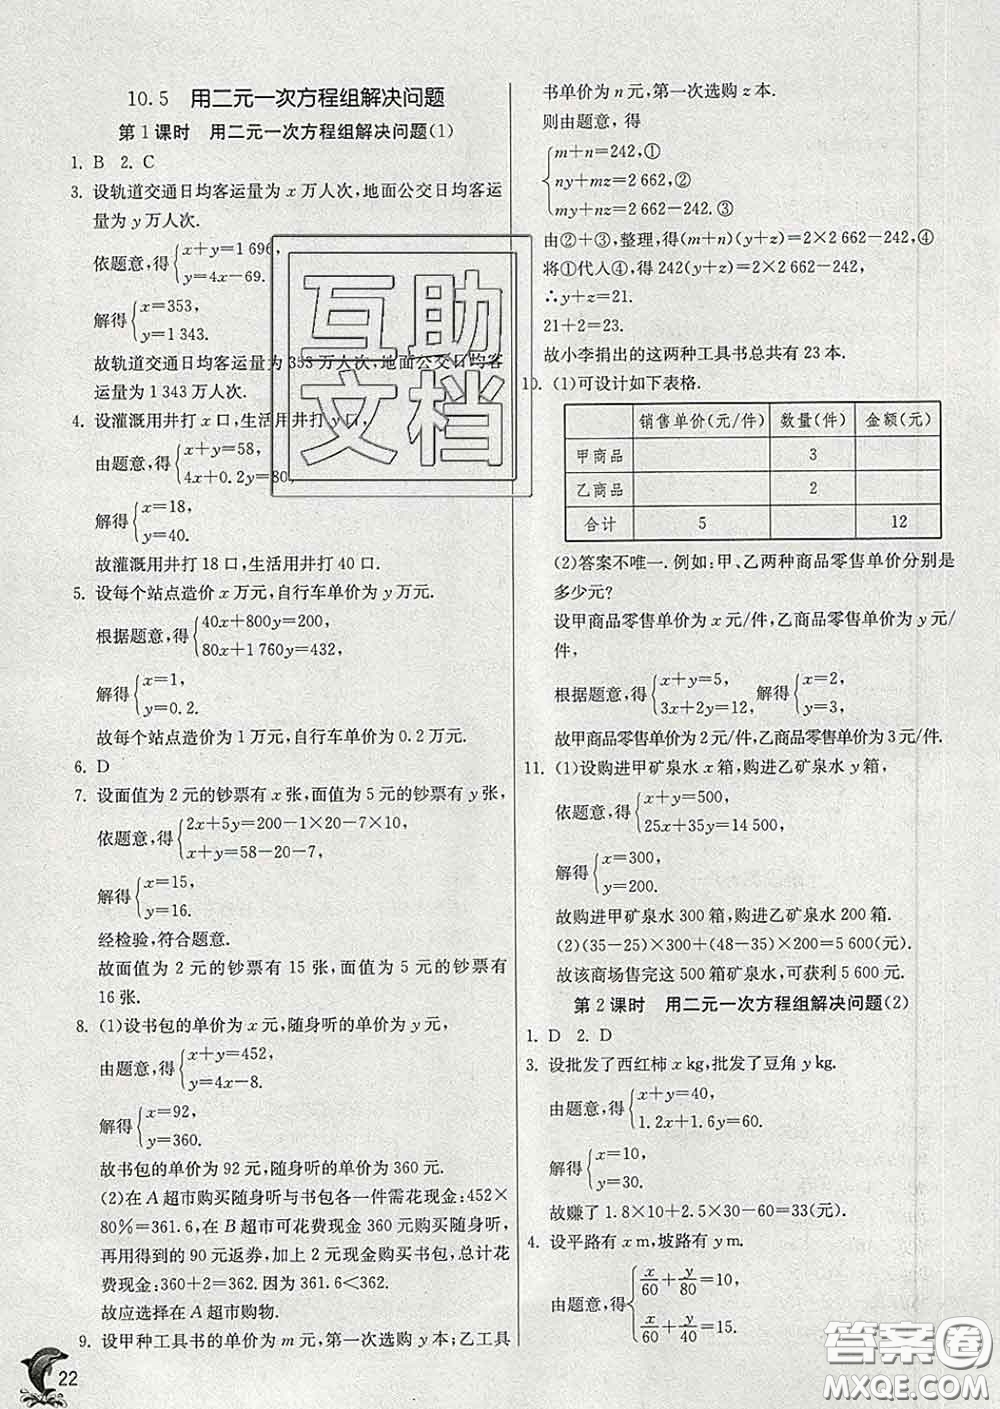 10.5 用二元一次方程组解决问题
第1课时 用二元一次方程组解决问题(1)
1. B 2. C
3. 设轨道交通日均客运量为 x 万人次,地面公交日均客运
量为 y 万人次.
依题意,得{x+y=1 696,
y=4x-69.
解得{x=353,
y=1 343.
故轨道交通日均客运量为 353 万人次,地面公交日均客
运量为 1 343 万人次.
4. 设灌溉用井打 x 口,生活用井打 y 口,
由题意,得{x+y=58,
4x+0.2y=80,
解得{x=18,
y=40.
故灌溉用井打 18 口,生活用井打 40 口.
5. 设每个站点造价 x 万元,自行车单价为 y 万元.
根据题意,得{40x+800y=200,
80x+1 760y=432,
解得{x=1,
y=0.2.
故每个站点造价为 1 万元,自行车单价为 0.2 万元.
6. D
7. 设面值为 2 元的钞票有 x 张,面值为 5 元的钞票有 y 张,
依题意,得{2x+5y=200-1×20-7×10,
x+y=58-20-7,
解得{x=15,
y=16.
经检验,符合题意.
故面值为 2 元的钞票有 15 张,面值为 5 元的钞票有
16 张.
8. (1)设书包的单价为 x 元,随身听的单价为 y 元,
由题意,得{x+y=452,
y=4x-8.
解得{x=92,
y=360.
故书包的单价为 92 元,随身听的单价为 360 元.
(2)在 A 超市购买随身听与书包各一件需花现金:452×
80%=361.6,在 B 超市可花费现金 360 元购买随身听,
再用得到的 90 元返券,加上 2 元现金购买书包,总计花
费现金:360+2=362. 因为 361.6<362.
故应选择在 A 超市购物.
9. 设甲种工具书的单价为 m 元,第一次选购 y 本;乙工具
22
书单价为 n 元,第一次选购 z 本.
则由题意,得
{m+n=242,①
ny+mz=2 662,②
my+nz=2 662-242.③
由②+③,整理,得(m+n)(y+z)=2×2 662-242,④
将①代人④,得 242(y+z)=2×2 662-242,
∴y+z=21.
21+2=23.
故小李捐出的这两种工具书总共有 23 本.
10. (1)可设计如下表格.
销售单价(元/件) 数量(件) 金额(元)
甲商品 3
乙商品 2
合计 5 12
(2)答案不唯一. 例如:甲、乙两种商品零售单价分别是
多少元?
设甲商品零售单价为 x 元/件,乙商品零售单价为 y 元/
件,
根据题意,得{x+y=5,
3x+2y=12, 解得{x=2,
y=3.
故甲商品零售单价为 2 元/件,乙商品零售单价为 3 元/件.
11. (1)设购进甲矿泉水 x 箱,购进乙矿泉水 y 箱,
依题意,得{x+y=500,
25x+35y=14 500,
解得{x=300,
y=200.
故购进甲矿泉水 300 箱,购进乙矿泉水 200 箱.
(2)(35-25)×300+(48-35)×200=5 600(元).
故该商场售完这 500 箱矿泉水,可获利 5 600 元.
第2课时 用二元一次方程组解决问题(2)
1. D 2. D
3. 设批发了西红柿 x kg,批发了豆角 y kg.
由题意,得{x+y=40,
1.2x+1.6y=60.
解得{x=10,
y=30.
故赚了 1.8×10+2.5×30-60=33(元).
4. 设平路有 x m,坡路有 y m.
由题意,得{x/60+y/80=10,
x/60+y/40=15.
互助
文档
答案圈
MXQE.COM